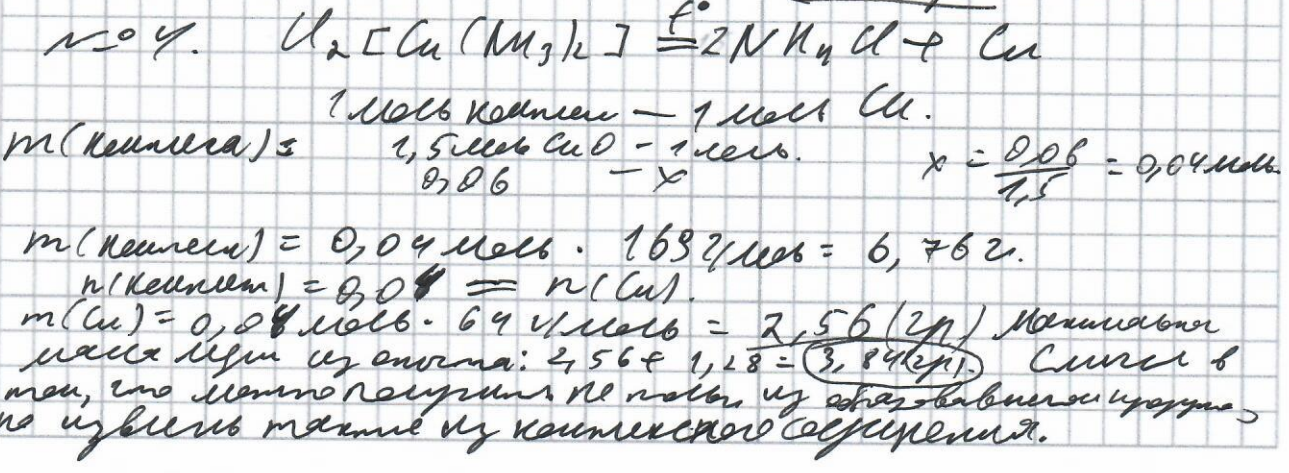 № 4. Cl₂[Cu(NH₃)₂] t° = 2NH₄Cl + Cu
1 моль комплек — 1 моль Cu.
m(комплекса) = 1,5 моль CuO – 1 моль. x = 0,06 / 1,5 = 0,04 моль.
0,06 – x
m(комплекса) = 0,04 моль · 169 г/моль = 6,76 г.
n(комплек) = 0,04 = n(Cu).
m(Cu) = 0,04 моль · 64 г/моль = 2,56 (гр) Максимальна
масса меди из опыта: 2,56 + 1,28 = 3,84 (гр). Смысл в
том, что можно получить не только из образовавшегося
но извлечь также из комплексного соединения.